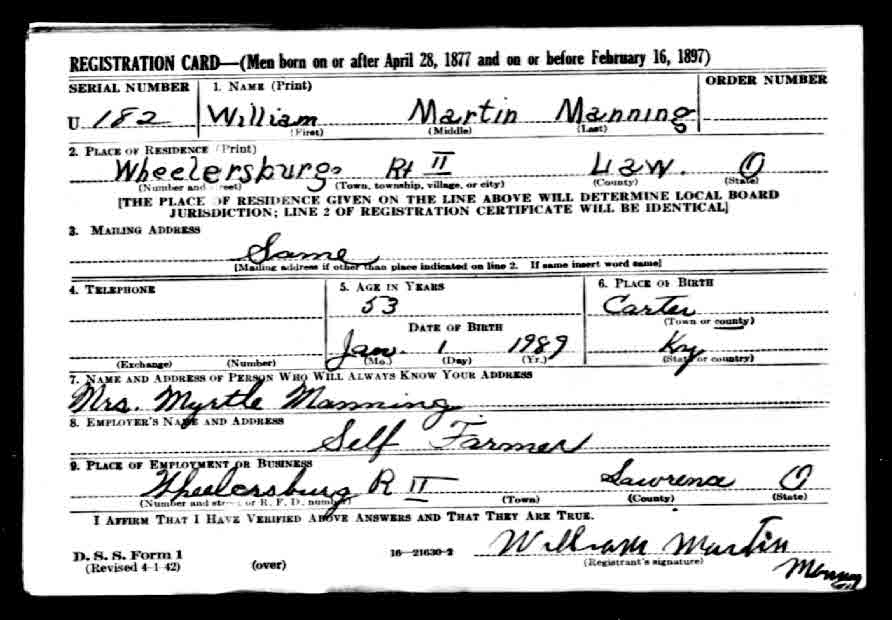 REGISTRATION CARD—(Men born on or after April 28, 1877 and on or before February 16, 1897)
SERIAL NUMBER 1. NAME (Print) ORDER NUMBER
U 182 William Martin Manning
(First) (Middle) (Last)
2. PLACE OF RESIDENCE (Print)
Wheelersburg Rt II Law. O
(Number and street) (Town, township, village, or city) (County) (State)
[THE PLACE OF RESIDENCE GIVEN ON THE LINE ABOVE WILL DETERMINE LOCAL BOARD
JURISDICTION; LINE 2 OF REGISTRATION CERTIFICATE WILL BE IDENTICAL]
3. MAILING ADDRESS
Same
[Mailing address if other than place indicated on line 2. If same insert word same]
4. TELEPHONE 5. AGE IN YEARS 6. PLACE OF BIRTH
53 Carter
(Town or county)
DATE OF BIRTH
Jan. 1 1989 Ky
(Exchange) (Number) (Mo.) (Day) (Yr.) (State or country)
7. NAME AND ADDRESS OF PERSON WHO WILL ALWAYS KNOW YOUR ADDRESS
Mrs. Myrtle Manning
8. EMPLOYER'S NAME AND ADDRESS
Self Farmer
9. PLACE OF EMPLOYMENT OR BUSINESS
Wheelersburg R II Lawrence O
(Number and street or R. F. D. number) (Town) (County) (State)
I AFFIRM THAT I HAVE VERIFIED ABOVE ANSWERS AND THAT THEY ARE TRUE.
D. S. S. Form 1 16—21630-2 William Martin
(Revised 4-1-42) (over) (Registrant's signature)
Manning